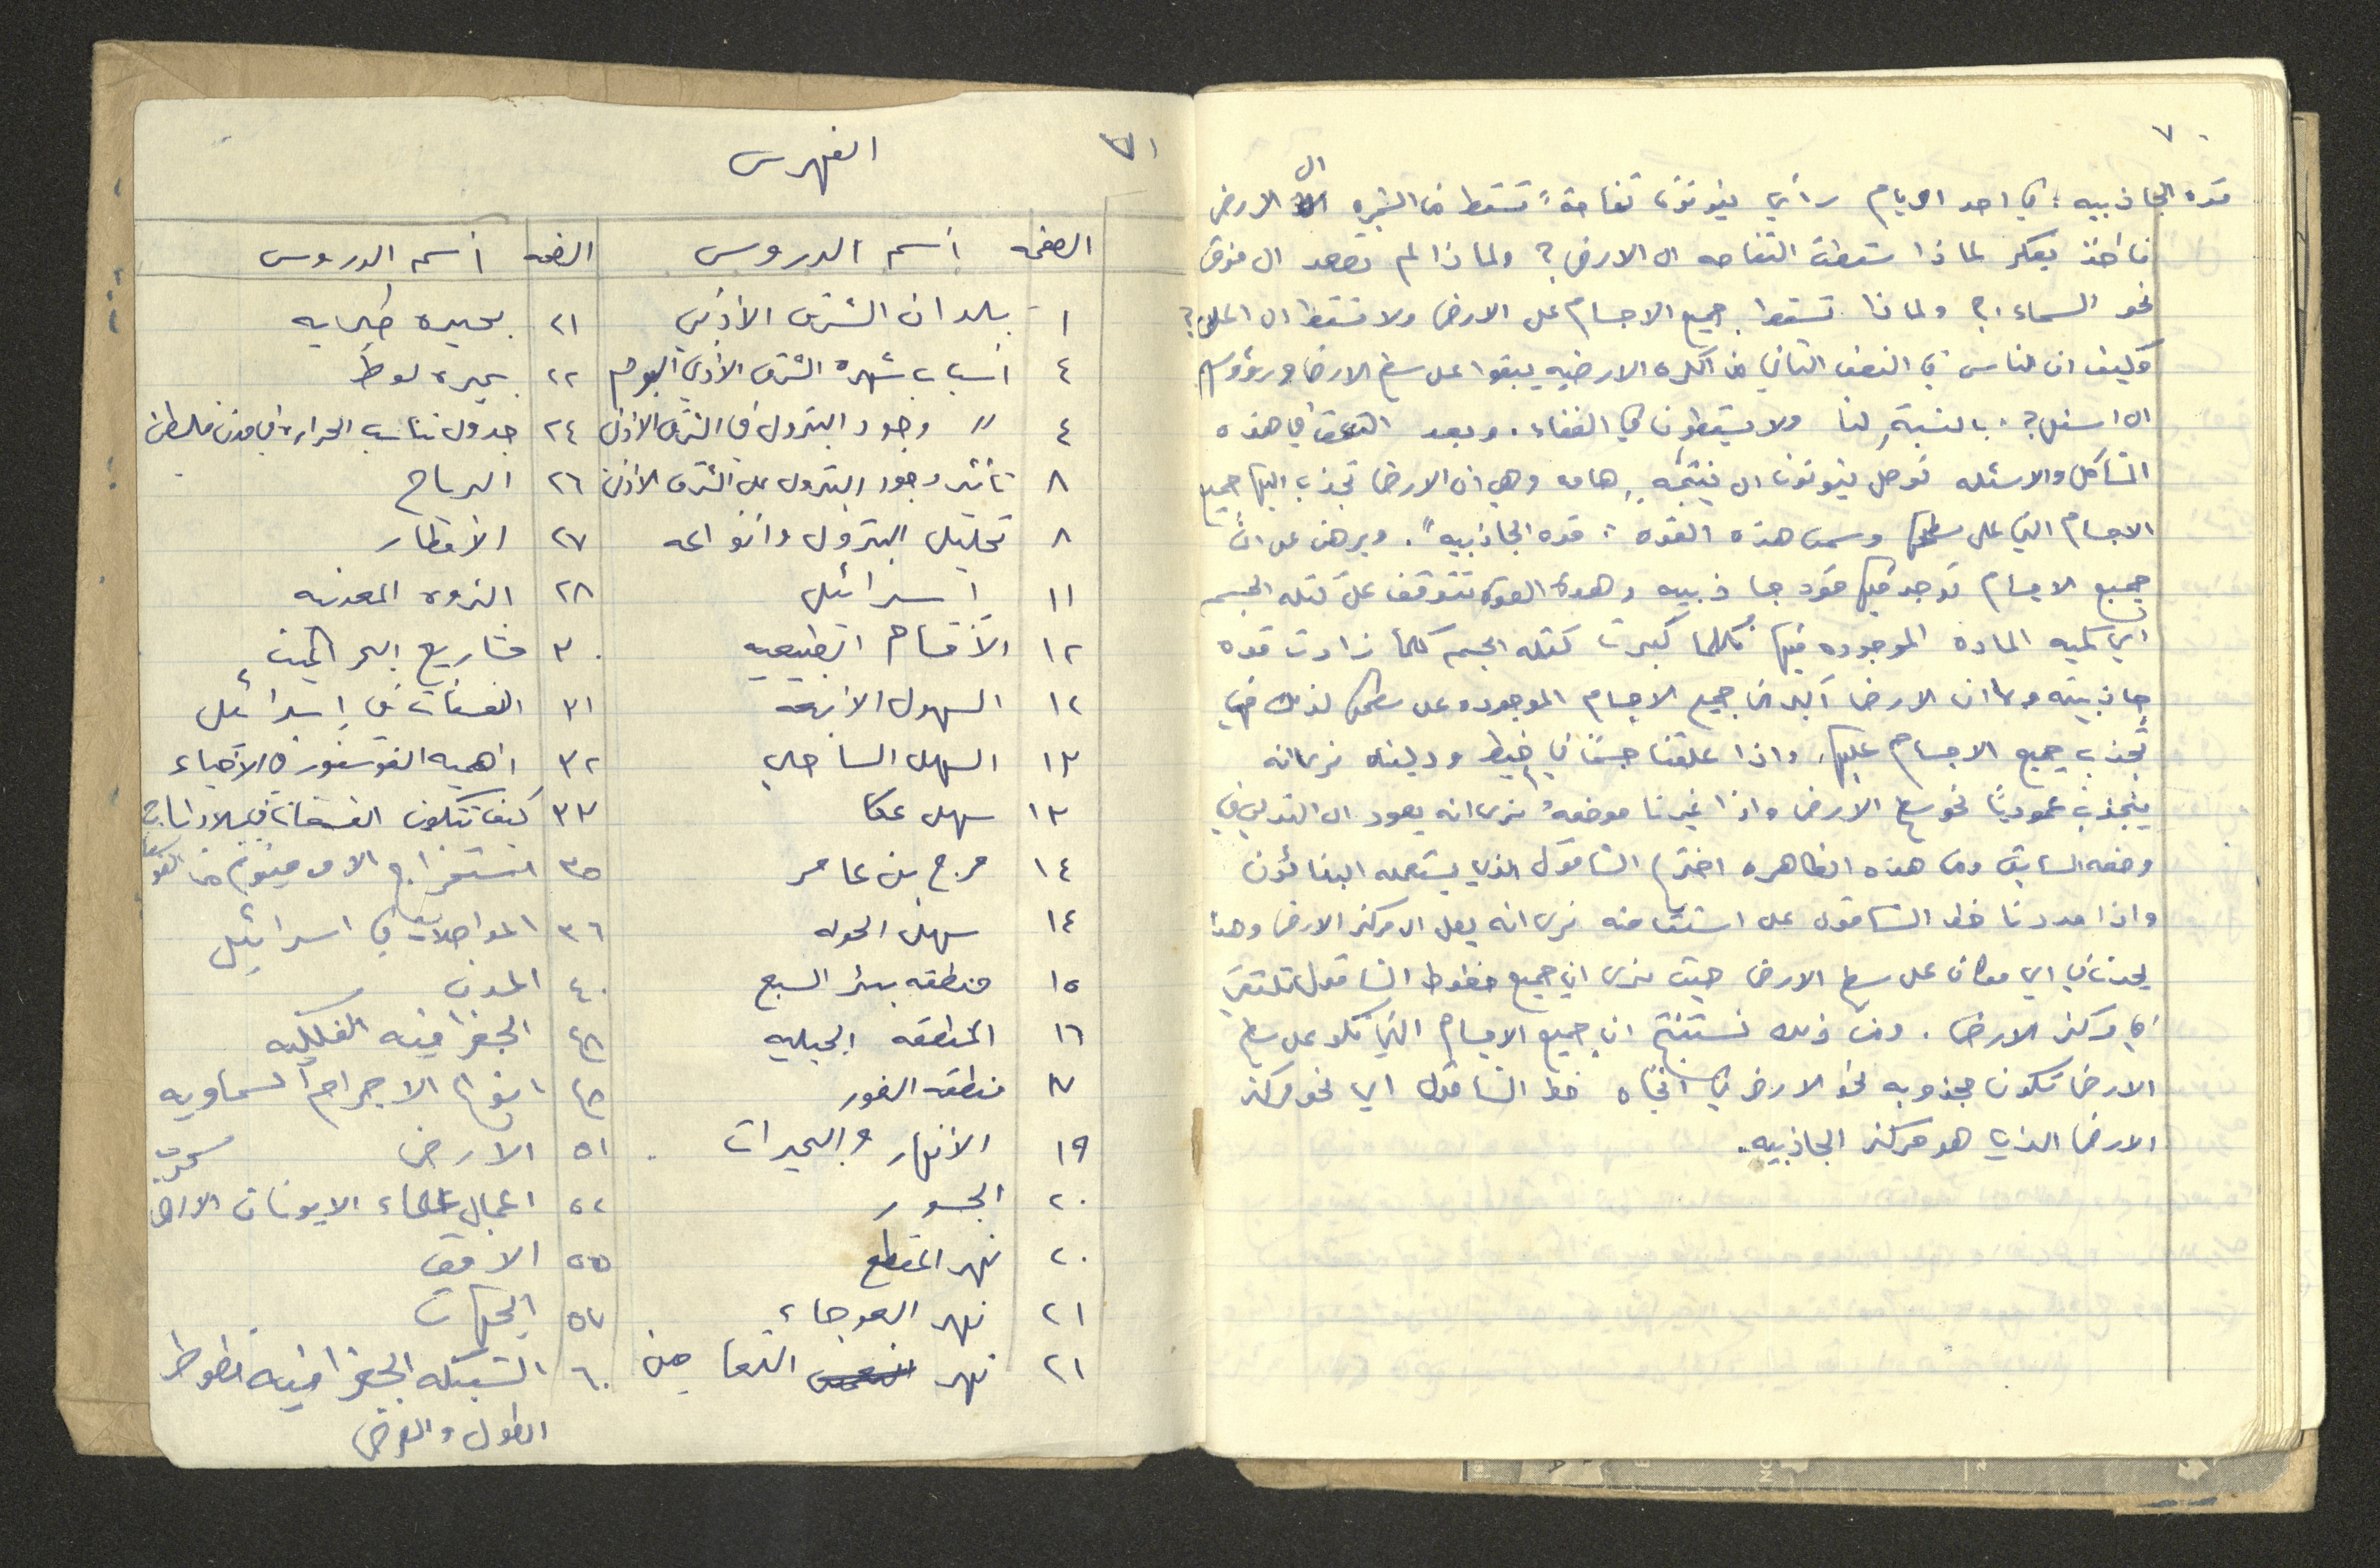 ٧٠
قوه الجاذبيه: في احد الايام رأي نيوتون تفاحة تسقط من الشجره الى الارض
فأخذ يفكر لماذا سقطت التفاحه الى الارض؟ ولماذا لم تصعد الى فوق
نحو السماء؟ ولماذا تسقط جميع الاجسام على الارض ولا تسقط الى اعلى؟
وكيف ان الناس في النصف الثاني من الكره الارضيه يبقوا على سطح الارض ورؤوسهم
الى اسفل؟ بالنسبة لنا ولا يسقطون في الفضاء. وبعد التعمق في هذه
المشاكل والاسئله توصل نيوتون الى نتيجة هامه وهي ان الارض تجذب اليها جميع
الاجسام التي على سطحها وسمى هذه القوه: قوه الجاذبيه". وبرهن على ان
جميع الاجسام توجد فيها قوه جاذبيه وهذه القوه تتوقف على كتله الجسم
اي كميه الماده الموجوده فيها فكلما كبرت كتله الجسم كلما زادت قوه
جاذبيته وبما ان الارض اكبر من جميع الاجسام الموجوده على سطحها لذلك فهي
تجذب جميع الاجسام عليها. واذا علقنا جسمًا في خيط ودليناه نرى انه
ينجذب عموديًا نحو سطح الارض واذا غيرنا موضعه نرى انه يعود الى التدلي في
وضعه السابق ومن هذه الظاهره اخترع الشاقول الذي يستعمله البناؤون
واذا مددنا خط الشاقول على استقامته نرى انه يصل الى مركز الارض وهذا
يحدث في اي مكان على سطح الارض حيث نرى ان جميع خطوط الشاقول تلتقي
في مركز الارض. ومن ذلك نستنتج ان جميع الاجسام التي تكون على سطح
الارض تكون مجذوبه نحو الارض في اتجاه خط الشاقول اي نحو مركز
الارض الذي هو مركز الجاذبيه.
٧١
الفهرس
الصفحه أسم الدروس الصفحه أسم الدروس
١ بلدان الشرق الأدنى ٢١ بحيره طبريه
٤ أسباب شهرة الشرق الأدنى اليوم ٢٢ بحيره لوط
٤ " وجود البترول في الشرق الأدنى ٢٤ جدول تناسب الحراره في مدن فلسطين
٨ تأثير وجود البترول على الشرق الأدنى ٢٦ الرياح
٨ تحليل البترول وانواعه ٢٧ الأمطار
١١ إسرائيل ٢٨ الثروه المعدنيه
١٢ الأقسام الطبيعيه ٣٠ مشاريع البحر الميت
١٢ السهول الأربعه ٣١ الفسفات في إسرائيل
١٣ السهل الساحلي ٣٢ اهميه الفوسفور في الأحياء
١٣ سهل عكا ٣٣ كيف تتكون الفسفات في بلادنا
١٤ مرج بن عامر ٣٥ استخراج الاورانيوم من الفوسفات
١٤ سهل الحوله ٣٦ المواصلات في اسرائيل
١٥ منطقه بئر السبع ٤٠ المدن
١٦ المنطقه الجبليه ٤٨ الجغرافيه الفلكيه
١٧ منطقه الغور انواع الاجرام السماويه
١٩ الأنهار والبحيرات ٥١ الارض
٢٠ الجسور ٥٢ اعمال علماء الايونان
٢٠ نهر المقطع ٥٥ الافق
٢١ نهر العوجاء ٥٧ الجهات
٢١ نهر التماسيح ٦٠ الشبكه الجغرافيه خطوط
الطول والعرض